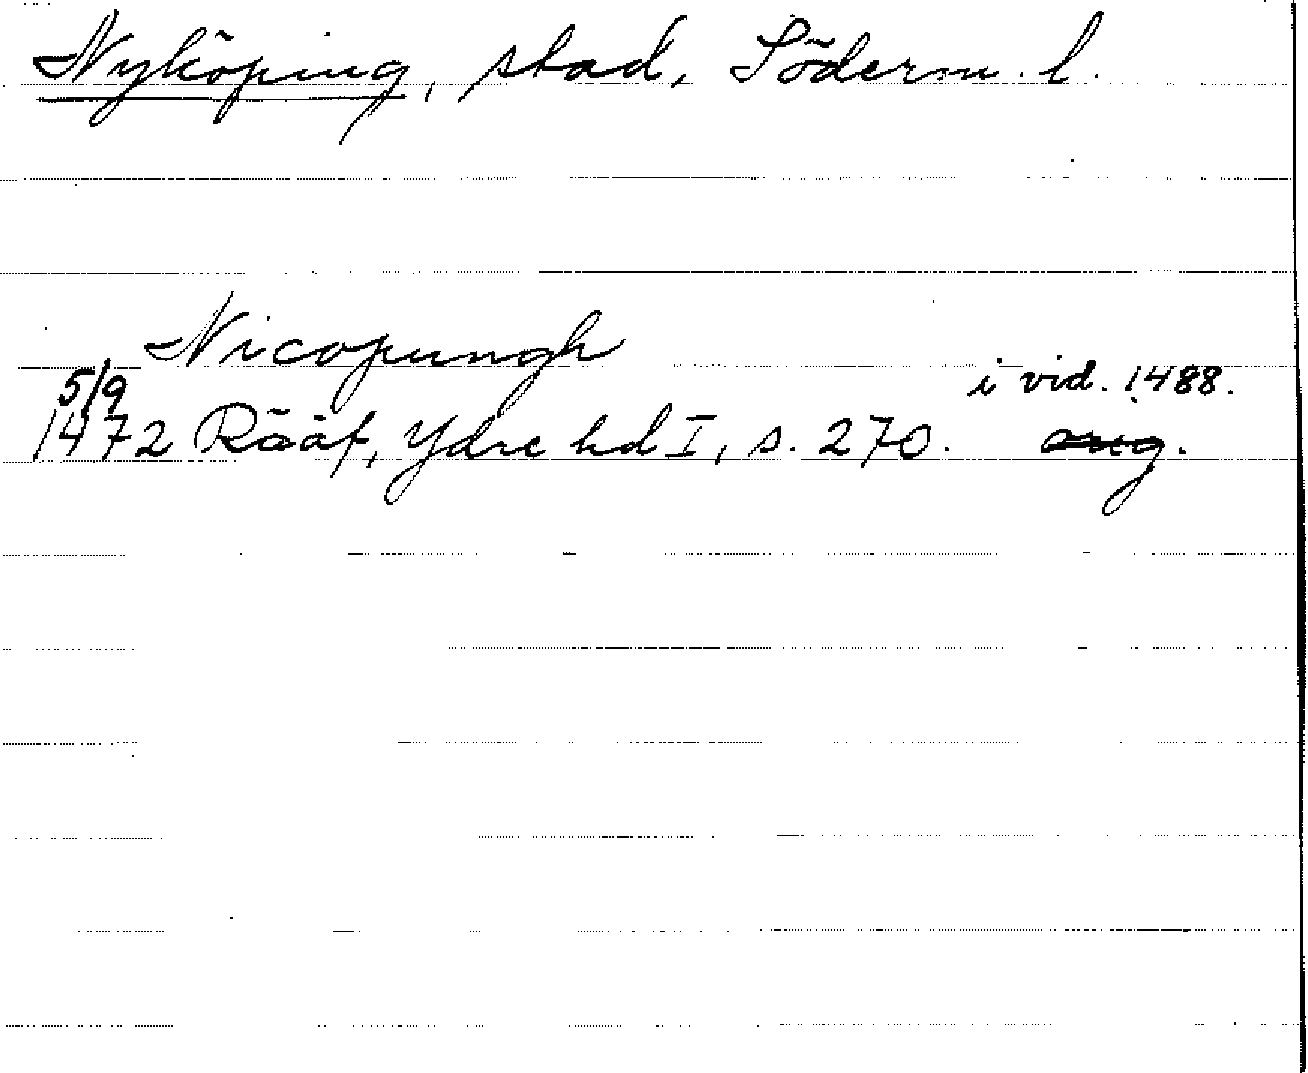 Nyköping, stad, Söderm. l.
Nicopungh
5/9 i vid. 1488.
1472 Rääf, Ydre hd I, s. 270. avg.